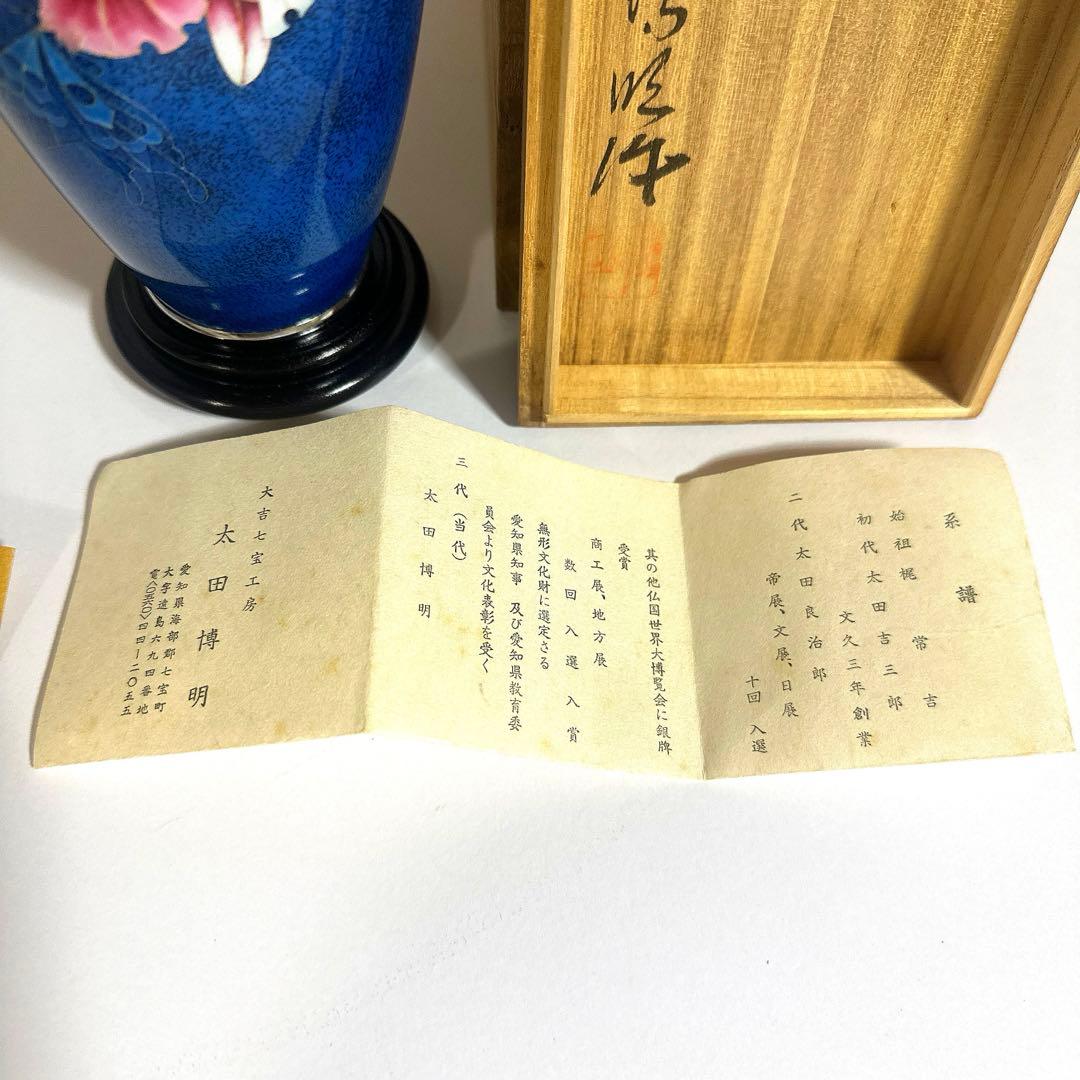 明作
系譜
始祖 梶常吉
初代 太田吉三郎
文久三年創業
二代 太田良治郎
帝展、文展、日展
十回 入選
其の他仏国世界大博覧会に銀牌
受賞
商工展、地方展
数回入選入賞
無形文化財に選定さる
愛知県知事 及び愛知県教育委
員会より文化表彰を受く
三代(当代)
太田博明
大吉七宝工房
太田博明
愛知県海部郡七宝町
大字遠島六九四番地
電〈〇五六〇〉四四―二〇五五